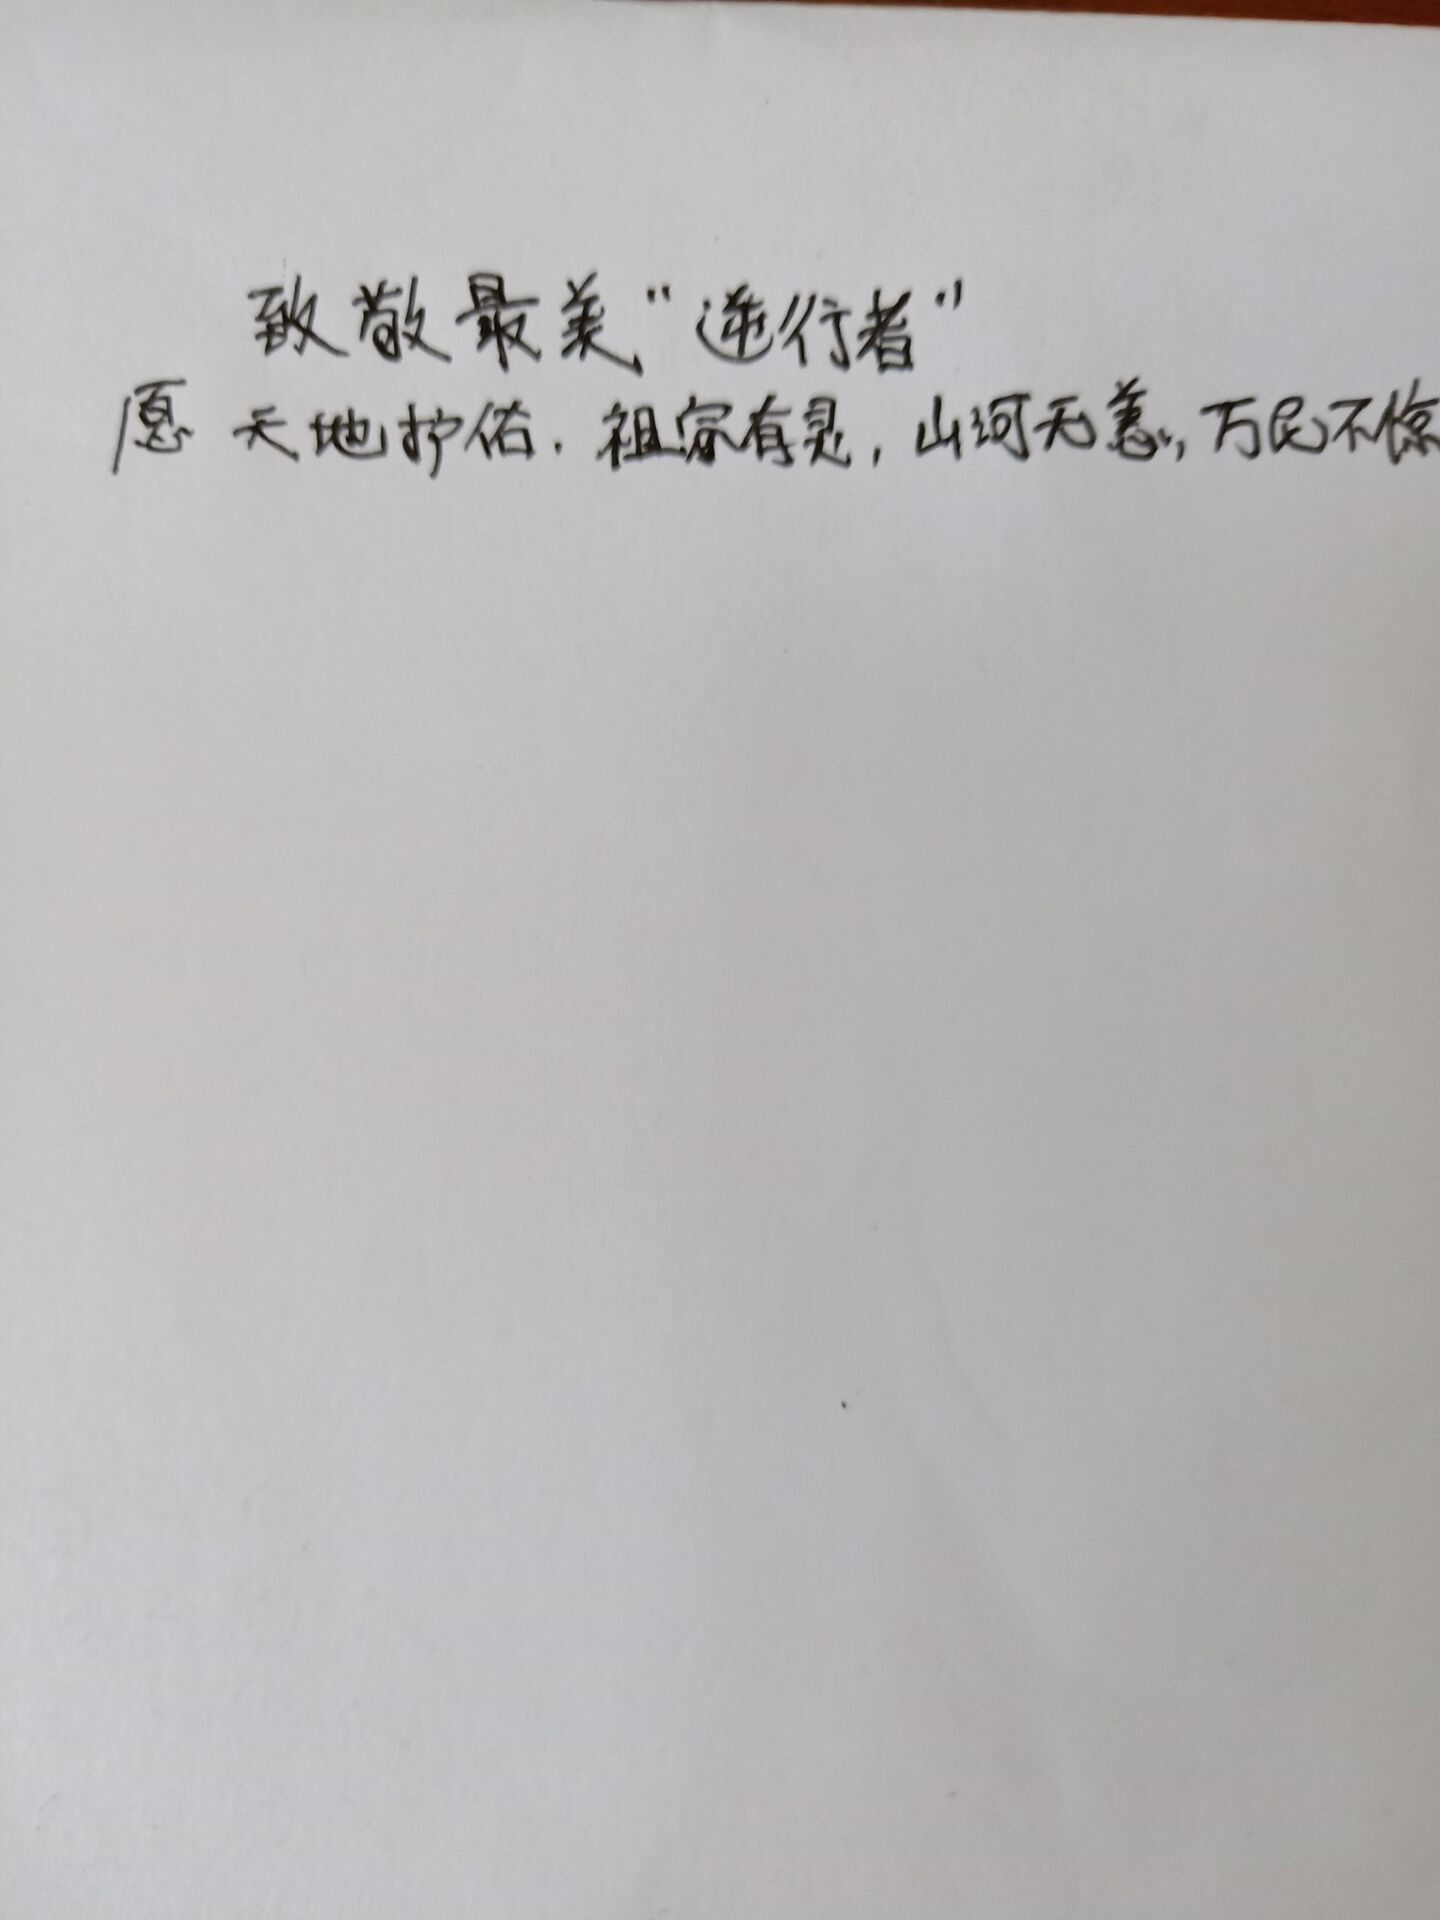 致敬最美“逆行者”
愿天地护佑.祖宗有灵,山河无恙,万民不惊